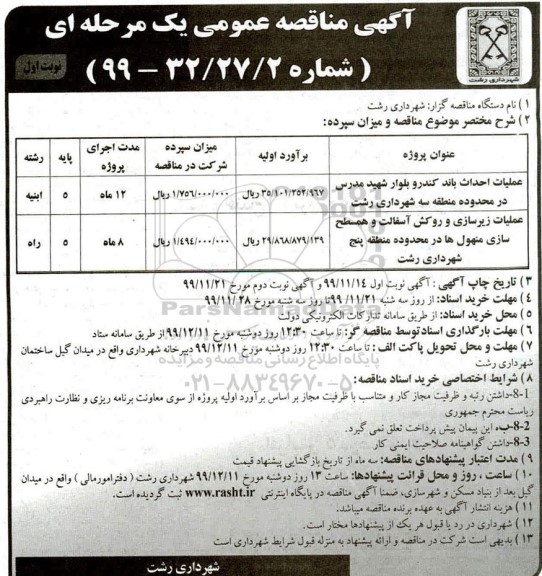 آگهی مناقصه عمومی یک مرحله ای
( شماره ۳۲/۲۷/۲ – ۹۹ )
نوبت اول
شهرداری رشت
۱ ) نام دستگاه مناقصه گزار: شهرداری رشت
۲ ) شرح مختصر موضوع مناقصه و میزان سپرده:
عنوان پروژه
برآورد اولیه
میزان سپرده شرکت در مناقصه
مدت اجرای پروژه
پایه
رشته
عملیات احداث باند کندرو بلوار شهید مدرس
در محدوده منطقه سه شهرداری رشت
۳۵/۱۰۱/۲۵۲/۹۶۷ ریال
۱/۷۵۶/۰۰۰/۰۰۰ ریال
۱۲ ماه
۵
ابنیه
عملیات زیرسازی و روکش آسفالت و همسطح
سازی منهول ها در محدوده منطقه پنج
شهرداری رشت
۲۹/۸۶۸/۸۷۹/۱۳۹ ریال
۱/۴۹۴/۰۰۰/۰۰۰ ریال
۸ ماه
۵
راه
۳ ) تاریخ چاپ آگهی : آگهی نوبت اول ۹۹/۱۱/۱۴ و آگهی نوبت دوم مورخ ۹۹/۱۱/۲۱
۴ ) مهلت خرید اسناد: از روز سه شنبه ۹۹/۱۱/۲۱ تا روز سه شنبه مورخ ۹۹/۱۱/۲۸
۵ ) محل خرید اسناد: از طریق سامانه تدارکات الکترونیکی دولت
۶ ) مهلت بارگذاری اسناد توسط مناقصه گو: تا ساعت ۱۲:۳۰ روز دوشنبه مورخ ۹۹/۱۲/۱۱ از طریق سامانه ستاد
۷ ) مهلت و محل تحویل پاکت الف : تا ساعت ۱۲:۳۰ روز دوشنبه مورخ ۹۹/۱۲/۱۱ دبیرخانه شهرداری واقع در میدان گیل ساختمان
شهرداری رشت
۸ ) شرایط اختصاصی خرید اسناد مناقصه:
8-1-داشتن رتبه و ظرفیت مجاز کار و متناسب با ظرفیت مجاز بر اساس برآورد اولیه پروژه از سوی معاونت برنامه ریزی و نظارت راهبردی
ریاست محترم جمهوری
8-2-ب، این پیمان پیش پرداخت تعلق نمی گیرد.
8-3-داشتن گواهینامه صلاحیت ایمنی کار
۹ ) مدت اعتبار پیشنهادهای مناقصه: سه ماه از تاریخ بازگشایی پیشنهاد قیمت
۱۰ ) ساعت ، روز و محل قرائت پیشنهادها: ساعت ۱۳ روز دوشنبه مورخ ۹۹/۱۲/۱۱ شهرداری رشت ( دفترامورمالی ) واقع در میدان
گیل بعد از بنیاد مسکن و شهرسازی، ضمنا آگهی مناقصه در پایگاه اینترنتی www.rasht.ir ثبت گردیده است.
۱۱ ) هزینه انتشار آگهی به عهده برنده مناقصه میباشد.
۱۲ ) شهرداری در رد یا قبول هر یک از پیشنهادها مختار است.
۱۳ ) بدیهی است شرکت در مناقصه و ارائه پیشنهاد به منزله قبول شرایط شهرداری است
شهرداری رشت
ParsNamadData
پایگاه اطلاع رسانی مناقصه و مزایده
۰۲۱-۸۸۳۴۹۶۷۰-۵